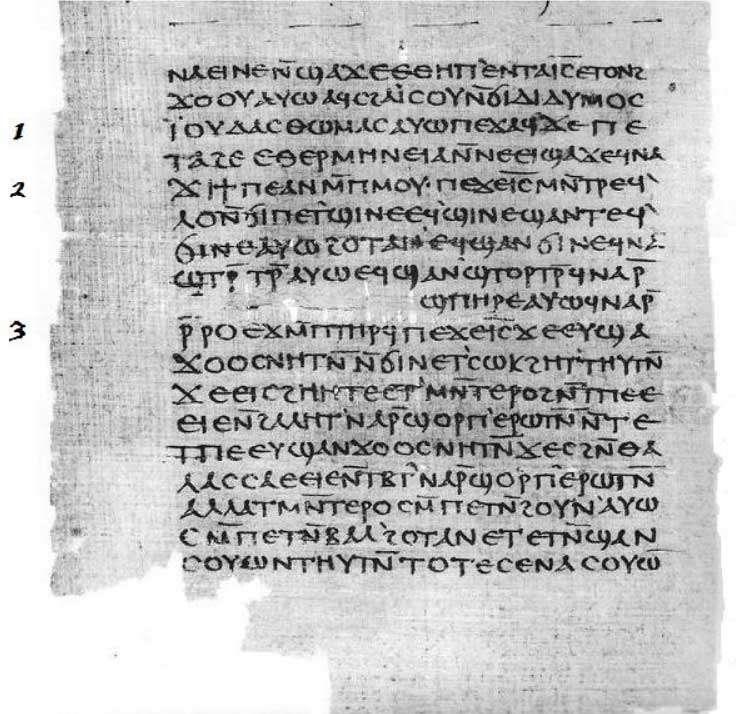 ⲛⲁⲉⲓⲛⲉⲛ̄ϣⲁϫⲉⲉⲑⲏⲡ'ⲉⲛⲧⲁⲓ̅ⲥ̅ⲉⲧⲟⲛϩ
ϫⲟⲟⲩⲁⲩⲱⲁϥⲥϩⲁⲓ̈ⲥⲟⲩⲛ̄ϭⲓⲇⲓⲇⲩⲙⲟⲥ
ⲓ̈ⲟⲩⲇⲁⲥⲑⲱⲙⲁⲥⲁⲩⲱⲡⲉϫⲁϥϫⲉⲡⲉ
ⲧⲁϩⲉⲉⲑⲉⲣⲙⲏⲛⲉⲓⲁⲛ̄ⲛⲉⲉⲓϣⲁϫⲉϥⲛⲁ
ϫⲓϯⲡⲉⲁⲛⲙ̄ⲡⲙⲟⲩ·ⲡⲉϫⲉⲓ̅ⲥ̅ⲙⲛ̄ⲧⲣⲉϥ'
ⲗⲟⲛ̄ϭⲓⲡⲉⲧϣⲓⲛⲉⲉϥϣⲓⲛⲉϣⲁⲛⲧⲉϥ'
ϭⲓⲛⲉⲁⲩⲱϩⲟⲧⲁⲛ'ⲉϥϣⲁⲛϭⲓⲛⲉϥⲛⲁ
ϣⲧⲣ̄ⲧⲣ̄ⲁⲩⲱⲉϥϣⲁⲛϣⲧⲟⲣⲧⲣ̄ϥⲛⲁⲣ̄
ϣⲡⲏⲣⲉⲁⲩⲱϥⲛⲁⲣ̄
ⲣ̄ⲣⲟⲉϫⲙ̄ⲡⲧⲏⲣϥⲡⲉϫⲉⲓ̅ⲥ̅ϫⲉⲉⲩϣⲁ
ϫⲟⲟⲥⲛⲏⲧⲛ̄ⲛ̄ϭⲓⲛⲉⲧ'ⲥⲱⲕϩⲏⲧ'ⲧⲏⲩⲧⲛ̄
ϫⲉⲉⲓⲥϩⲏⲏⲧⲉⲉⲧ'ⲙⲛ̄ⲧⲉⲣⲟϩⲛ̄ⲧⲡⲉⲉ
ⲉⲓⲉⲛ̄ϩⲁⲗⲏⲧ'ⲛⲁⲣ̄ϣⲟⲣⲡ'ⲉⲣⲱⲧⲛ̄ⲛ̄ⲧⲉ
ⲧⲡⲉⲉⲩϣⲁⲛϫⲟⲟⲥⲛⲏⲧⲛ̄ϫⲉⲥϩⲛ̄ⲑⲁ
ⲗⲁⲥⲥⲁⲉⲉⲓⲉⲛ̄ⲧⲃⲧ'ⲛⲁⲣ̄ϣⲟⲣⲡ'ⲉⲣⲱⲧⲛ̄
ⲁⲗⲗⲁⲧⲙⲛ̄ⲧⲉⲣⲟⲥⲙ̄ⲡⲉⲧⲛ̄ϩⲟⲩⲛ'ⲁⲩⲱ
ⲥⲙ̄ⲡⲉⲧⲛ̄ⲃⲁⲗ'ϩⲟⲧⲁⲛⲉⲧⲉⲧⲛ̄ϣⲁⲛ
ⲥⲟⲩⲱⲛⲧⲏⲩⲧⲛ̄ⲧⲟⲧⲉⲥⲉⲛⲁⲥⲟⲩⲱ̅
1
2
3